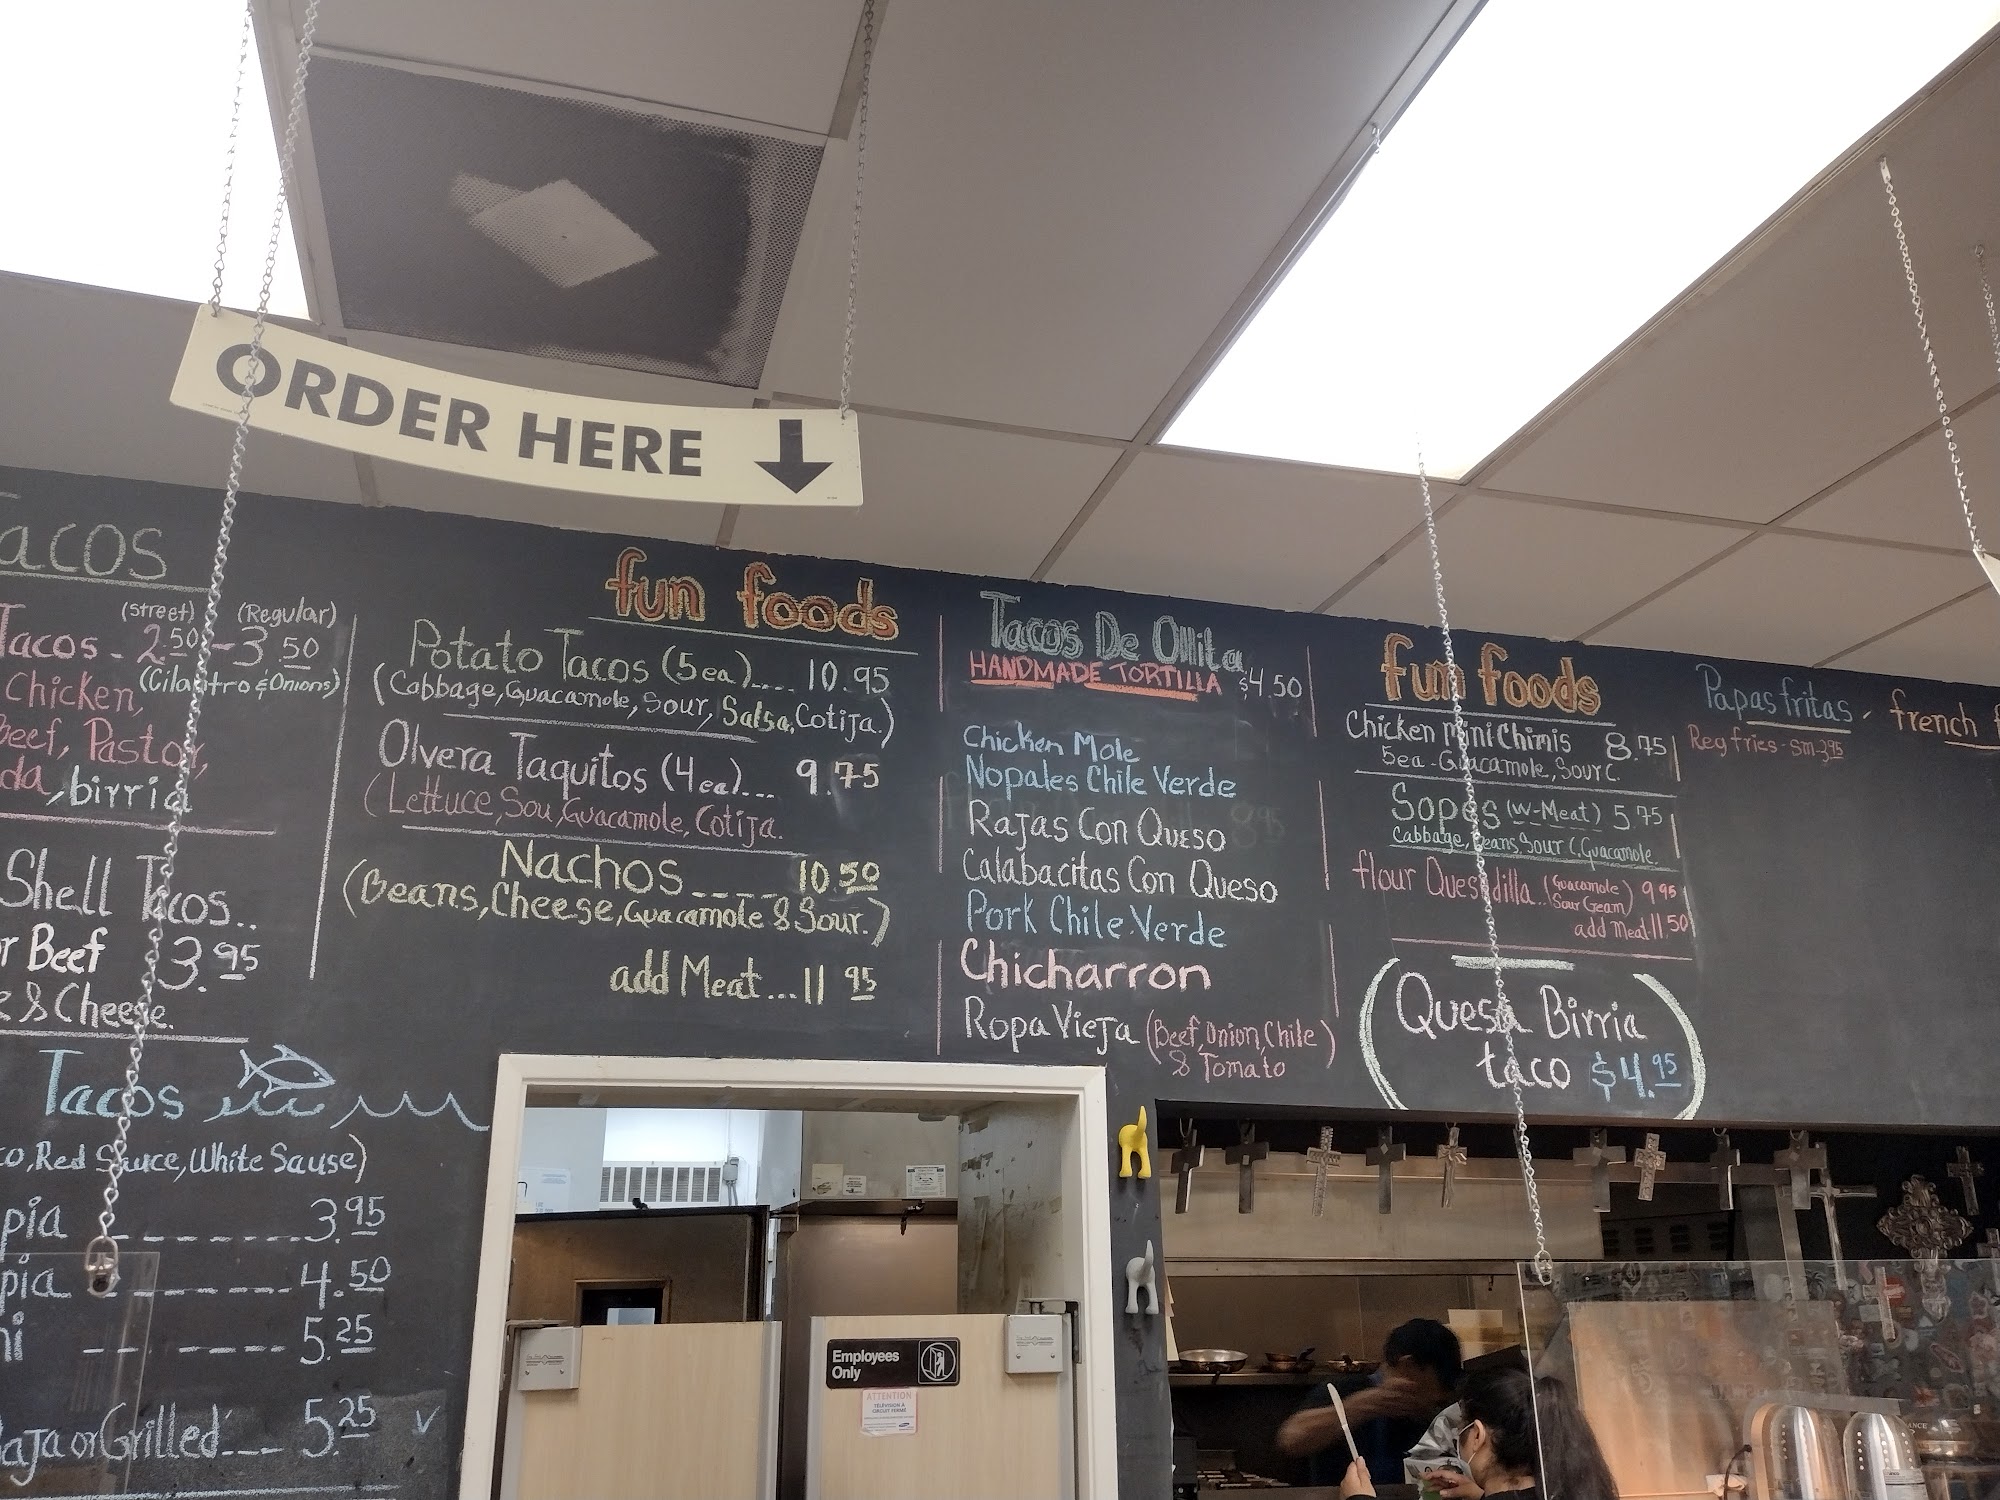 ORDER HERE
acos
(Street) (Regular)
Tacos - 2.50 - 3.50
(Cilantro & Onions)
Chicken,
Beef, Pastor,
da, birria
Shell Tacos..
or Beef 3.95
& Cheese.
Tacos
co, Red Sauce, White Sause)
pia -------- 3.95
pia ------- 4.50
hi -- ----- 5.25
Baja or Grilled --- 5.25
fun foods
Potato Tacos (5ea).... 10.95
(Cabbage, Guacamole, Sour, Salsa, Cotija.)
Olvera Taquitos (4ea)... 9.75
(Lettuce, Sou, Guacamole, Cotija.
Nachos ---- 10.50
(Beans, Cheese, Guacamole & Sour.)
add Meat...11.95
Tacos De Ollita
HANDMADE TORTILLA $4.50
Chicken Mole
Nopales Chile Verde
Rajas Con Queso
Calabacitas Con Queso
Pork Chile Verde
Chicharron
Ropa Vieja (Beef, Onion, Chile)
& Tomato
fun foods
Chicken mini Chimis 8.75
5ea - Guacamole, Sour C.
Sopes (w-Meat) 5.75
Cabbage, Beans, Sour C. Guacamole.
flour Quesadilla.. (Guacamole Sour Cream) 9.95
add Meat-11.50
Quesa Birria
taco $4.95
Papas fritas - french f
Reg fries - Sm 3.95
Employees
Only
ATTENTION
TÉLÉVISION À
CIRCUIT FERMÉ